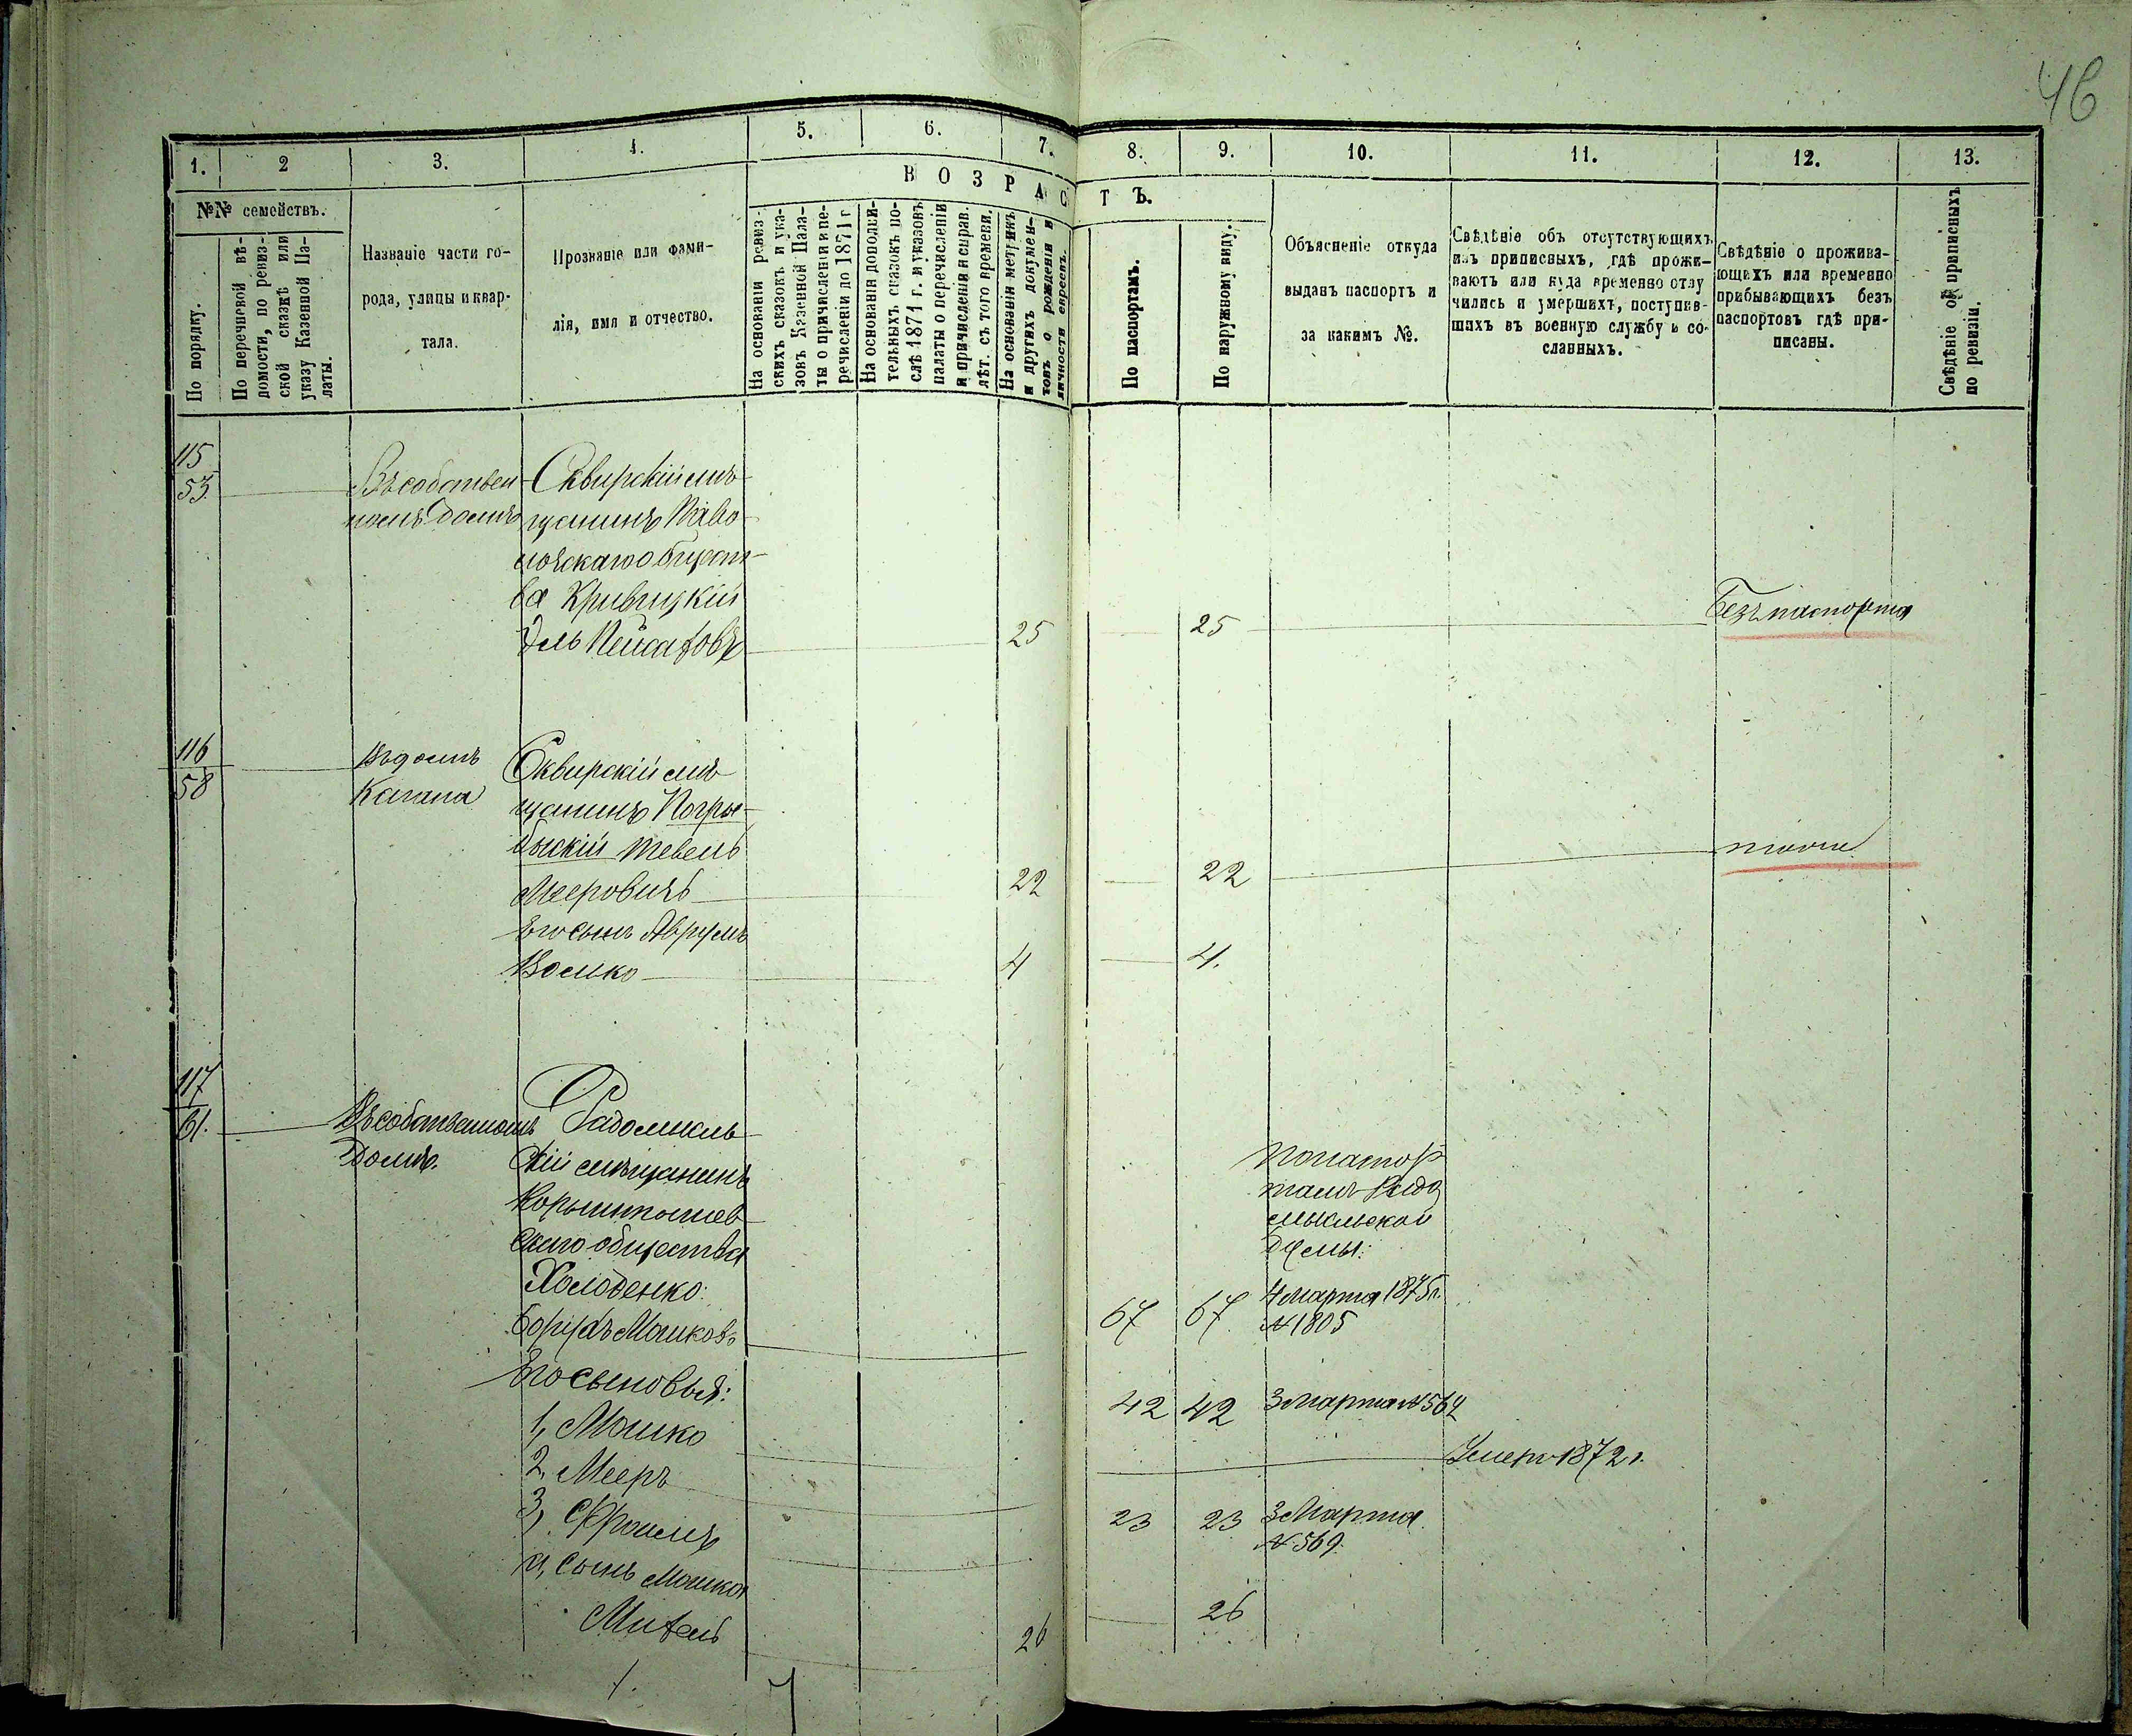 46
1. 2 3. 4. 5. 6. 7. 8. 9. 10. 11. 12. 13.
ВОЗРАСТЪ.
№№ семействъ.
По порядку.
По перечневой вѣ-
домости, по ревиз-
ской сказкѣ или
указу Казенной Па-
латы.
Названіе части го-
рода, улицы и квар-
тала.
Прозваніе или фами-
лія, имя и отчество.
На основаніи ревиз-
скихъ сказокъ и ука-
зовъ Казенной Пала-
ты о причисленіи и пе-
речисленіи до 1871 г
На основаніи дополни-
тельныхъ сказокъ по-
слѣ 1871 г. и указовъ
палаты о перечисленіи
и причисленіи и исправ.
лѣт. съ того времени.
На основаніи метрикъ
и другихъ докумен-
товъ о рожденіи и
личности евреевъ.
По паспортамъ.
По наружному виду.
Объясненіе откуда
выданъ паспортъ и
за какимъ №.
Свѣдѣніе объ отсутствующихъ
изъ приписныхъ, гдѣ прожи-
ваютъ или куда временно отлу
чились и умершихъ, поступив-
шихъ въ военную службу и со-
сланныхъ.
Свѣдѣніе о прожива-
ющихъ или временно
прибывающихъ безъ
паспортовъ гдѣ при-
писаны.
Свѣдѣніе о приписныхъ
по ревизіи.
115
53
Въ собствен
номъ домѣ
Сквирскій мѣ-
щанинъ Паво-
лочскаго общест-
ва Кривицкій
Эль Пейсаховъ
25 25
Безъ паспорта
116
58
Въ домѣ
Кагана
Сквирскій мѣ-
щанинъ Погре-
быскій Тевель
Мееровичъ
22 22
тоже
Его сынъ Аврумъ
Волько
4 4.
117
61.
Въ собственномъ
домѣ.
Радомысль-
скій мѣщанинъ
Коростышев-
скаго общества
Холоденко:
Борухъ Мошковъ
67 67
По паспор
тамъ Радо
мысльской
Думы:
4 Марта 1875 г.
№ 1805
Его сыновья:
1, Мошко
42 42 3 Марта № 564
2, Мееръ
Умеръ 1872 г.
3, Фроимъ
23 23 3 Марта
№ 569.
а, сынъ Мошка
Михель
26 26